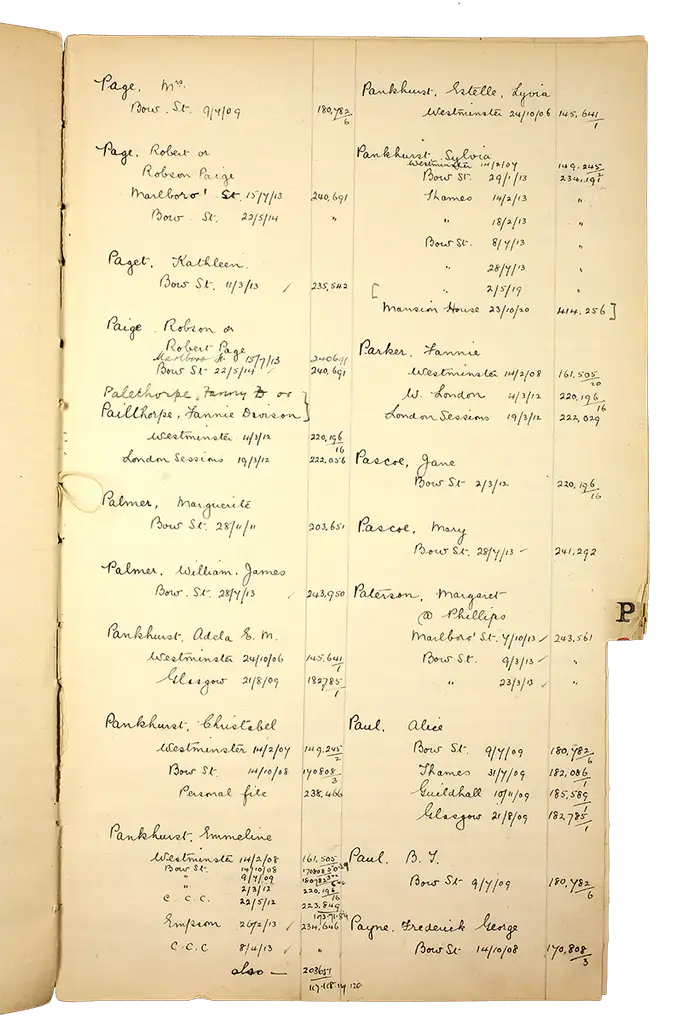 Page, Mrs.
Bow. St. 9/7/09 180,782/6
Page, Robert or
Robson Paige
Marlboro' St. 15/7/13 240,691
Bow. St. 22/5/14 "
Paget, Kathleen.
Bow St. 11/3/13 ✓ 235,542
Paige. Robson or
Robert Page
Marlboro St. 15/7/13 240691
Bow St. 22/5/14 ✓ 240,691
Palethorpe, Fanny D or
Pailthorpe, Fannie Davison }
Westminster 4/3/12 220,196/16
London Sessions 19/3/12 222,056
Palmer, Marguerite
Bow St. 28/11/11 203,651
Palmer, William, James
Bow. St. 28/7/13 ✓ 243,950
Pankhurst, Adela E. M.
Westminster 24/10/06 145,641/1
Glasgow 21/8/09 182785/1
Pankhurst, Christabel
Westminster 14/2/07 149,245/2
Bow St. 14/10/08 170808/3
Personal file 238,466
Pankhurst, Emmeline
Westminster 14/2/08 161,505
Bow St. 14/10/08 170808
" 9/7/09 180782
" 2/3/12 220,196/16
C.C.C. 22/5/12 223,849
Epsom 26/2/13 ✓ 234,646
C.C.C 8/4/13 ✓ "
also — 203651
117-118-119-120
Pankhurst, Estelle, Sylvia
Westminster 24/10/06 145,641/1
Pankhurst, Sylvia
Westminster 14/2/07 149.245/2
Bow St. 29/1/13 234,191
Thames 14/2/13 "
" 18/2/13 "
Bow St. 8/7/13 "
" 28/7/13 "
[ " 2/5/19 "
Mansion House 23/10/20 414.256 ]
Parker, Fannie
Westminster 14/2/08 161,505/20
W. London 4/3/12 220,196/16
London Sessions 19/3/12 222,029
Pascoe, Jane
Bow St 2/3/12 220,196/16
Pascoe, Mary
Bow St. 28/7/13 ✓ 241,292
Paterson, Margaret
@ Phillips
Marlboro' St. 7/10/13 ✓ 243,561
Bow St. 9/3/13 ✓ "
" 23/3/13 ✓ "
Paul, Alice
Bow St. 9/7/09 180,782/6
Thames 31/7/09 182,086/1
Guildhall 10/11/09 185,589/1
Glasgow 21/8/09 182,785/1
Paul, B. T.
Bow St 9/7/09 180,782/6
Payne, Frederick George
Bow St. 14/10/08 170,808/3
P